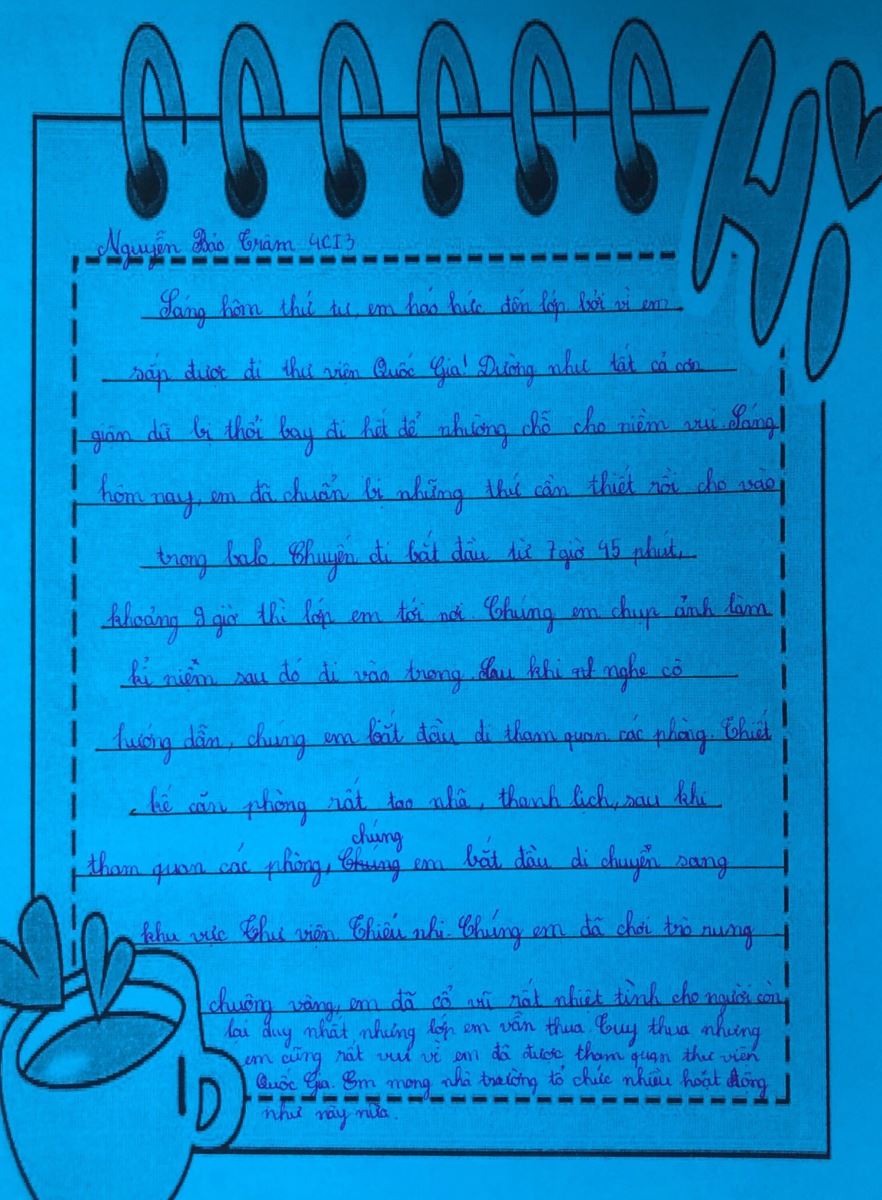 Hi
Nguyễn Bảo Trâm 4CI3
Sáng hôm thứ tư, em háo hức đến lớp bởi vì em
sắp được đi thư viện Quốc Gia! Dường như tất cả cơn
giận dữ bị thổi bay đi hết để nhường chỗ cho niềm vui. Sáng
hôm nay, em đã chuẩn bị những thứ cần thiết rồi cho vào
trong balo. Chuyến đi bắt đầu từ 7giờ 45 phút,
khoảng 9 giờ thì lớp em tới nơi. Chúng em chụp ảnh làm
kỉ niểm sau đó đi vào trong. Sau khi nghe cô
hướng dẫn, chúng em bắt đầu đi tham quan các phòng. Thiết
kế căn phòng rất tao nhã, thanh lịch, sau khi
chúng
tham quan các phòng, Chúng em bắt đầu di chuyển sang
khu vực Thư viện Thiếu nhi. Chúng em đã chơi trò rung
chuông vàng, em đã cổ vũ rất nhiệt tình cho người còn
lại duy nhất nhưng lớp em vẫn thua. Tuy thua nhưng
em cũng rất vui vì em đã được tham quan thư viên
Quốc Gia. Em mong nhà trường tổ chức nhiều hoạt động
như này nữa.